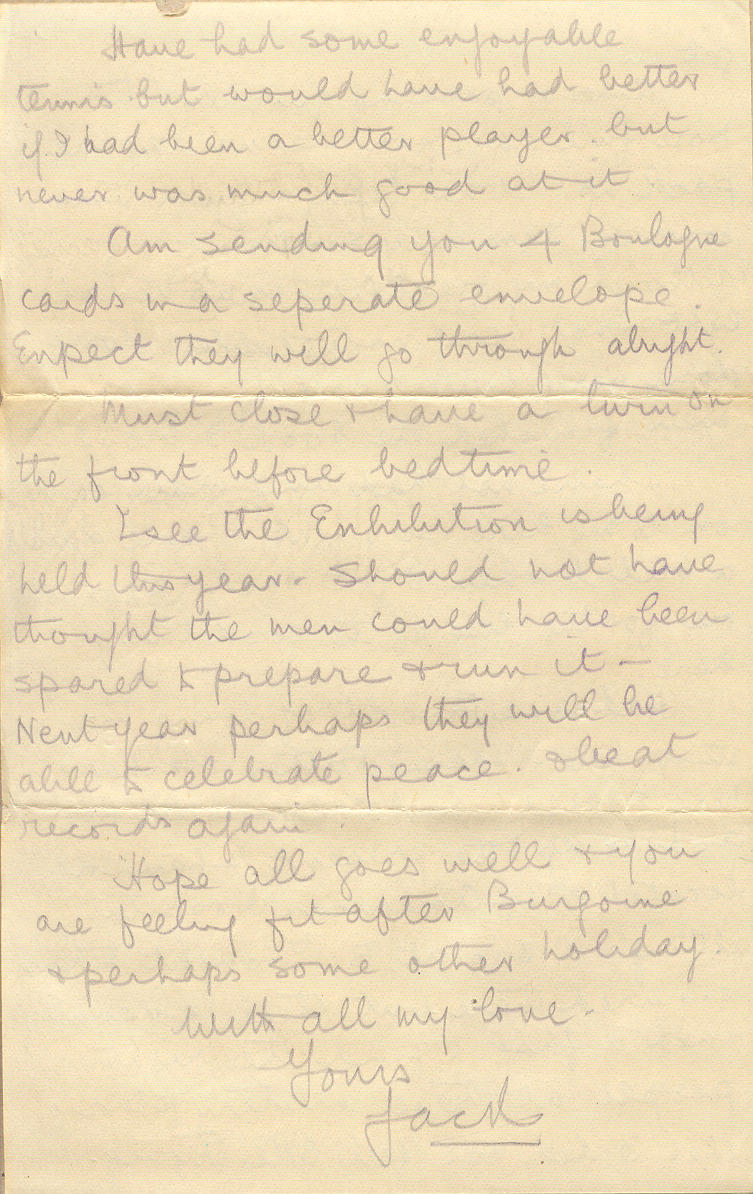 Have had some enjoyable
tennis but would have had better
if I had been a better player. but
never was much good at it.
Am sending you 4 Boulogne
cards in a seperate envelope.
Expect they will go through alright.
Must close & have a turn on
the front before bedtime.
I see the Exhibition is being
held this year. Should not have
thought the men could have been
spared to prepare & run it —
Next year perhaps they will be
able to celebrate peace. & beat
records again.
Hope all goes well & you
are feeling fit after Burgoine
& perhaps some other holiday.
With all my love.
Yours
Jack